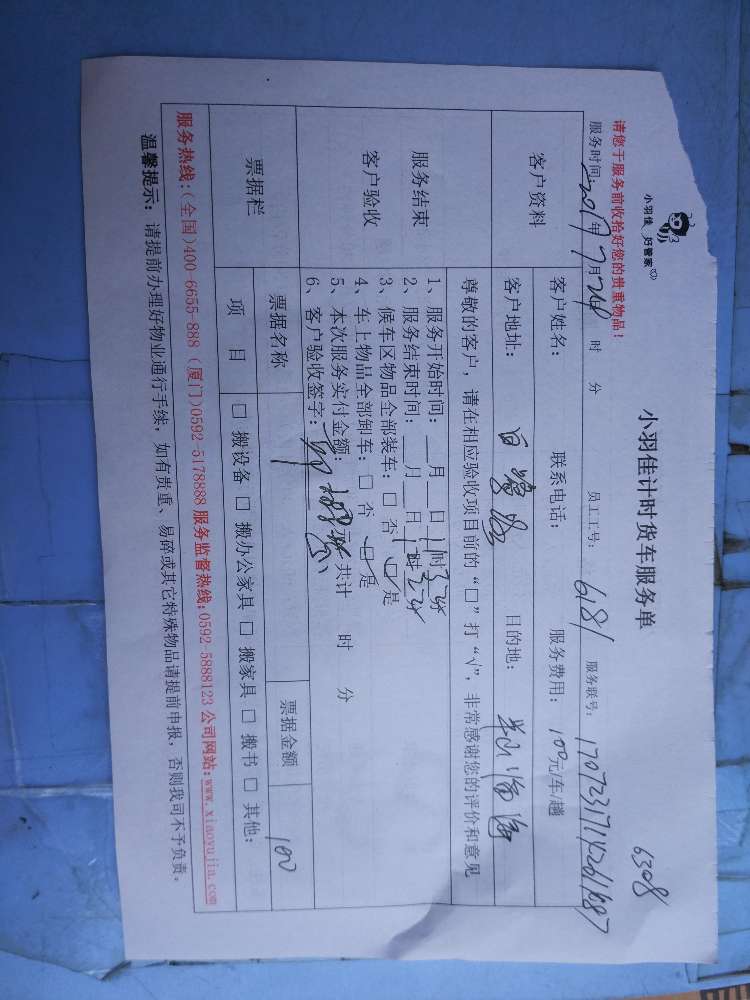 小羽佳 好管家
小羽佳计时货车服务单
6308
请您于服务前收拾好您的贵重物品！
服务时间：2017年7月24日 时 分 员工工号：6181 服务联号：
客户资料
客户姓名： 联系电话： 服务费用：100元/车/趟
客户地址：白鹭 目的地：
尊敬的客户，请在相应验收项目前的“□”打“√”，非常感谢您的评价和意见
服务结束
客户验收
1、服务开始时间：__月__日11时
2、服务结束时间：__月__日
3、候车区物品全部装车：□ 否 ☑ 是
4、车上物品全部卸车：□ 否 ☑ 是
5、本次服务实付金额：100元 共计 时 分
6、客户验收签字：
票据栏
票据名称 票据金额 100
项 目 □ 搬设备 □ 搬办公家具 □ 搬家具 □ 搬书 □ 其他：
服务热线：(全国)400-6655-888 (厦门)0592-5178888 服务监督热线：0592-5888123 公司网站：www.xiaoyujia.com
温馨提示：请提前办理好物业通行手续，如有贵重、易碎或其它特殊物品请提前申报，否则我司不予负责。